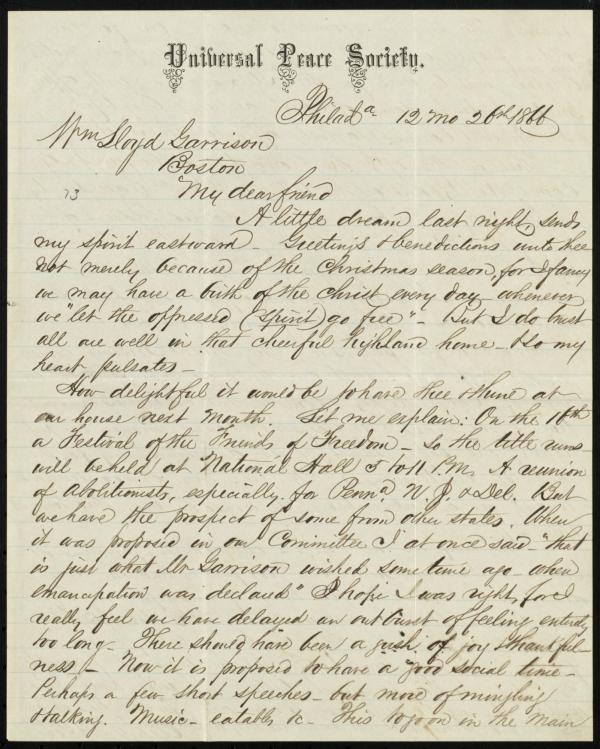 Universal Peace Society.
Philada 12 mo 26th 1866
Wm Lloyd Garrison
Boston
73
My dear friend
A little dream last night, sends
my spirit eastward - Greetings & benedictions unto thee
not merely because of the Christmas season, for I fancy
we may have a birth of the Christ every day whenever
we "let the oppressed (spirit) go free" - But I do trust
all are well in that cheerful highland home - So my
heart pulsates -
How delightful it would be to have thee & thine at
our house next month. Let me explain: On the 10th
a Festival of the Friends of Freedom - so the title runs -
will be held at National Hall 5 to 11 P.M. A reunion
of abolitionists, especially, for Penna N. J. & Del. But
we have the prospect of some from other states. When
it was proposed in our Committee I at once said - "that
is just what Mr Garrison wished some time ago - when
emancipation was declared" I hope I was right, for I
really feel we have delayed an outburst of feeling entirely
too long - There should have been a gush of joy & thankful-
ness - Now it is proposed to have a good social time -
Perhaps a few short speeches - but more of mingling
& talking. Music - eatables &c - This to go on in the main